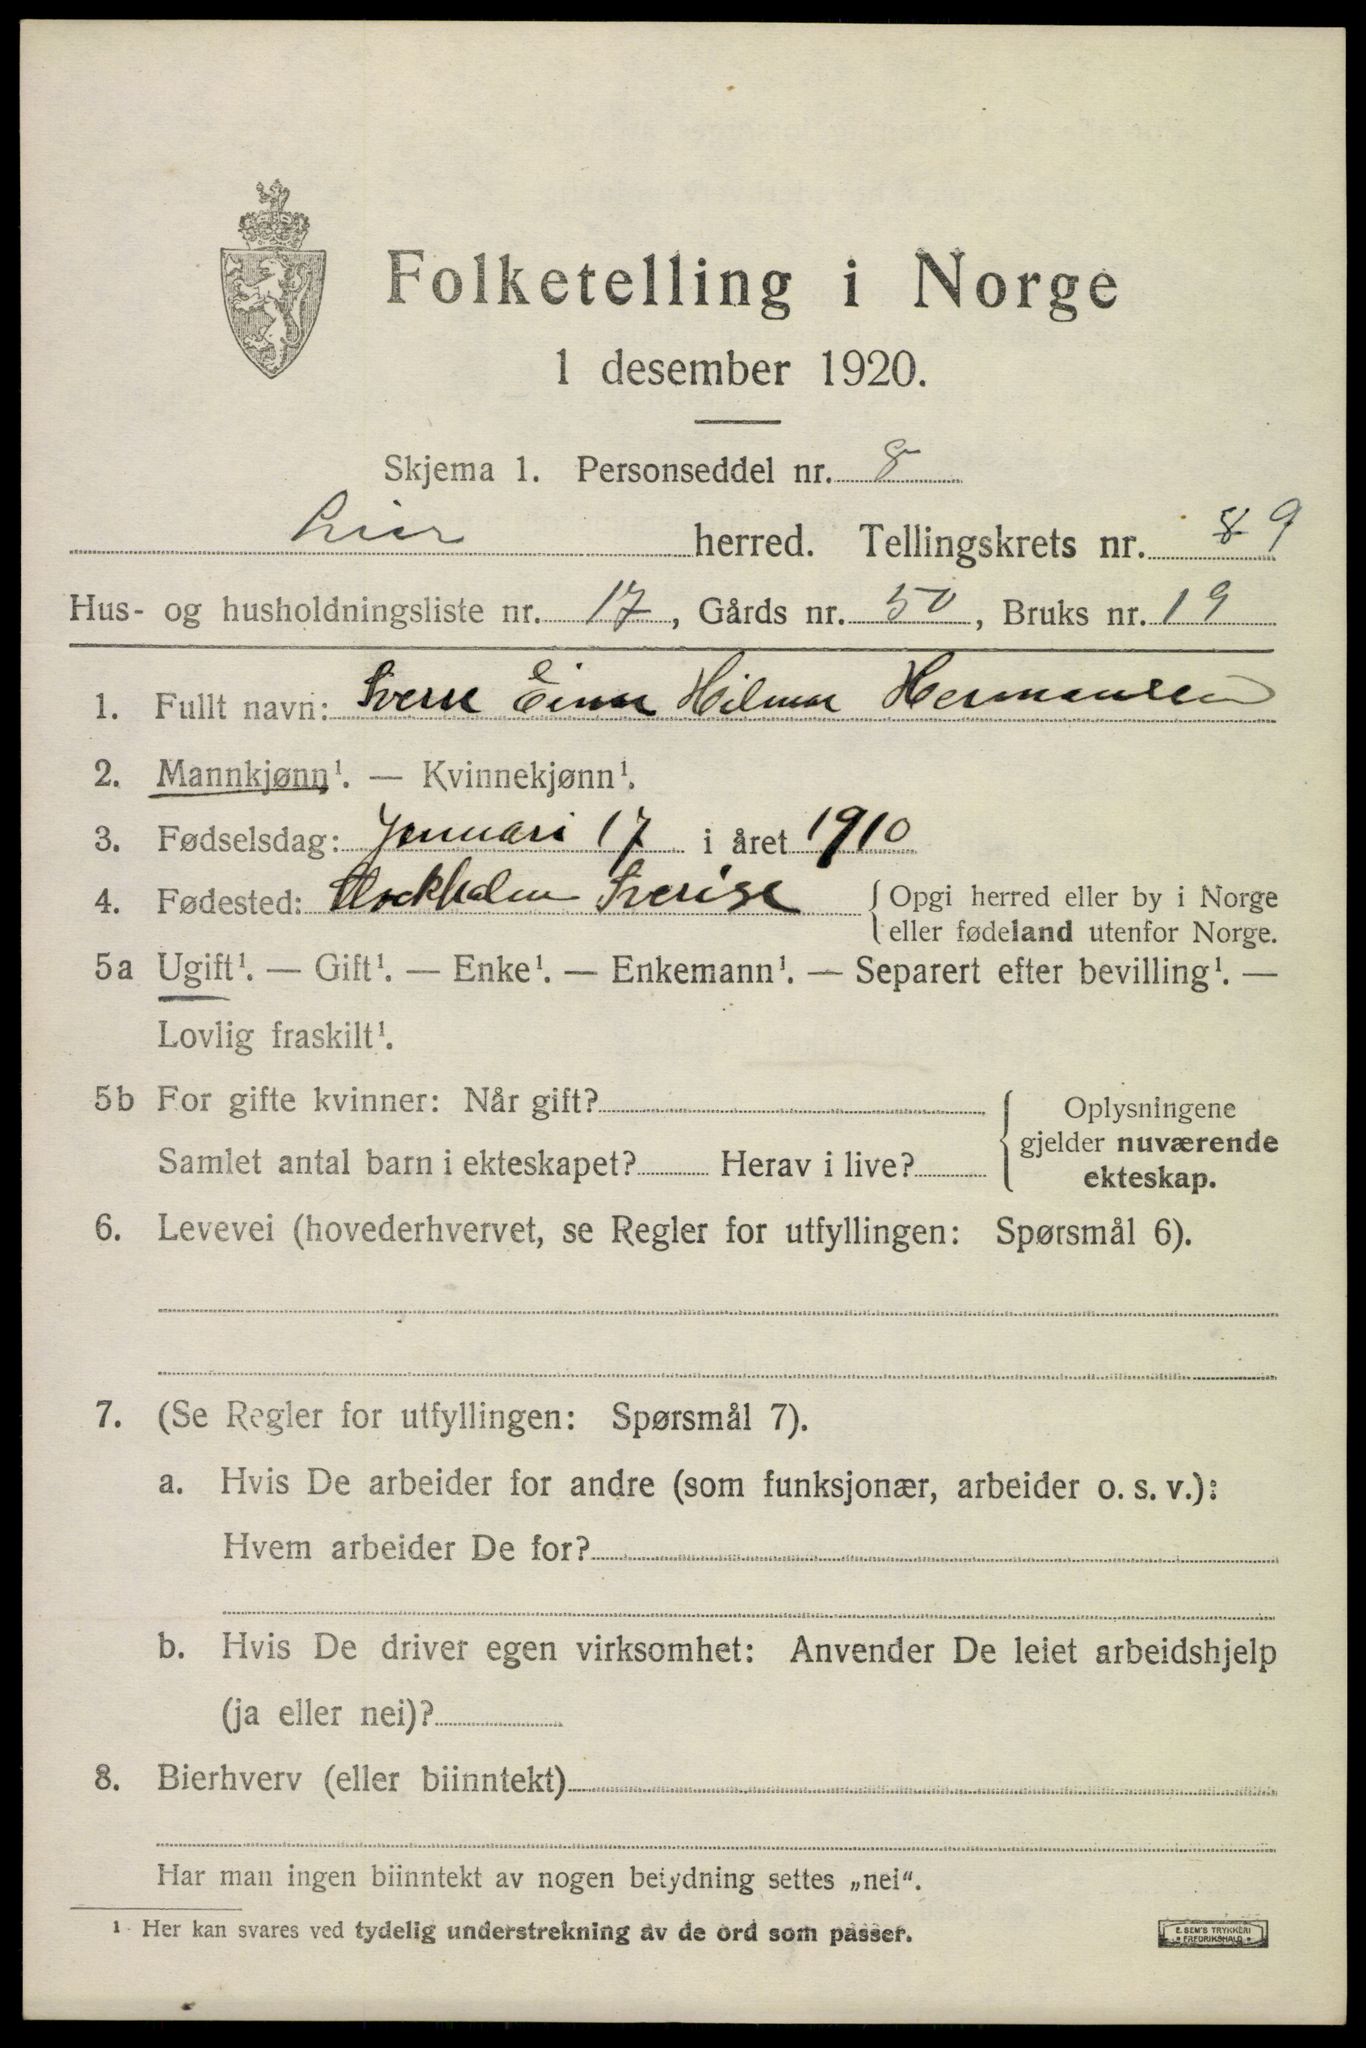 Folketelling i Norge
1 desember 1920.
Skjema 1. Personseddel nr. 8
Lier herred. Tellingskrets nr. 8 9
Hus- og husholdningsliste nr. 17, Gårds nr. 50, Bruks nr. 19
1. Fullt navn: Sverre Einar Hilmar Hermansen
2. Mannkjønn¹. — Kvinnekjønn¹.
3. Fødselsdag: Januari 17 i året 1910
4. Fødested: Stockholm Sverige { Opgi herred eller by i Norge
eller fødeland utenfor Norge.
5a Ugift¹. — Gift¹. — Enke¹. — Enkemann¹. — Separert efter bevilling¹. —
Lovlig fraskilt¹.
5b For gifte kvinner: Når gift? { Oplysningene
gjelder nuværende
Samlet antal barn i ekteskapet? Herav i live?
ekteskap.
6. Levevei (hovederhvervet, se Regler for utfyllingen: Spørsmål 6).
7. (Se Regler for utfyllingen: Spørsmål 7).
a. Hvis De arbeider for andre (som funksjonær, arbeider o. s. v.):
Hvem arbeider De for?
b. Hvis De driver egen virksomhet: Anvender De leiet arbeidshjelp
(ja eller nei)?
8. Bierhverv (eller biinntekt)
Har man ingen biinntekt av nogen betydning settes „nei“.
¹ Her kan svares ved tydelig understrekning av de ord som passer.
E. SEM'S TRYKKERI
* FREDRIKSHALD *